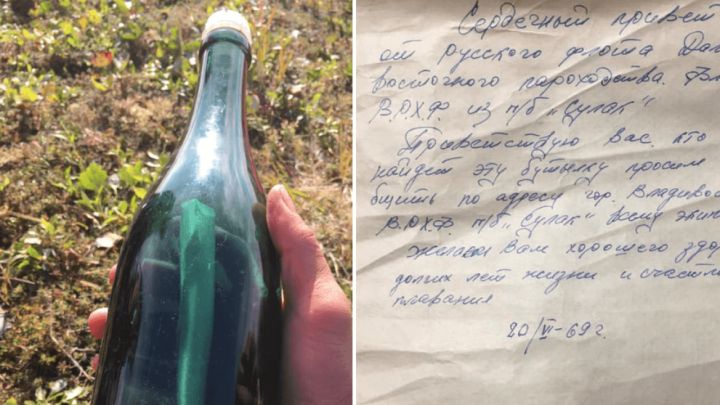 Сердечный привет
от русского флота Дал
восточного пароходства.
В.О.Х.Ф. из п/б „Сулак"
Приветствую Вас, кто
найдет эту бутылку просим
общить по адресу гор. Владиво
В.О.Х.Ф. п/б „Сулак" всему экип
Желаем Вам хорошего здор
долгих лет жизни и счастли
плавания
20/VI-69 г.